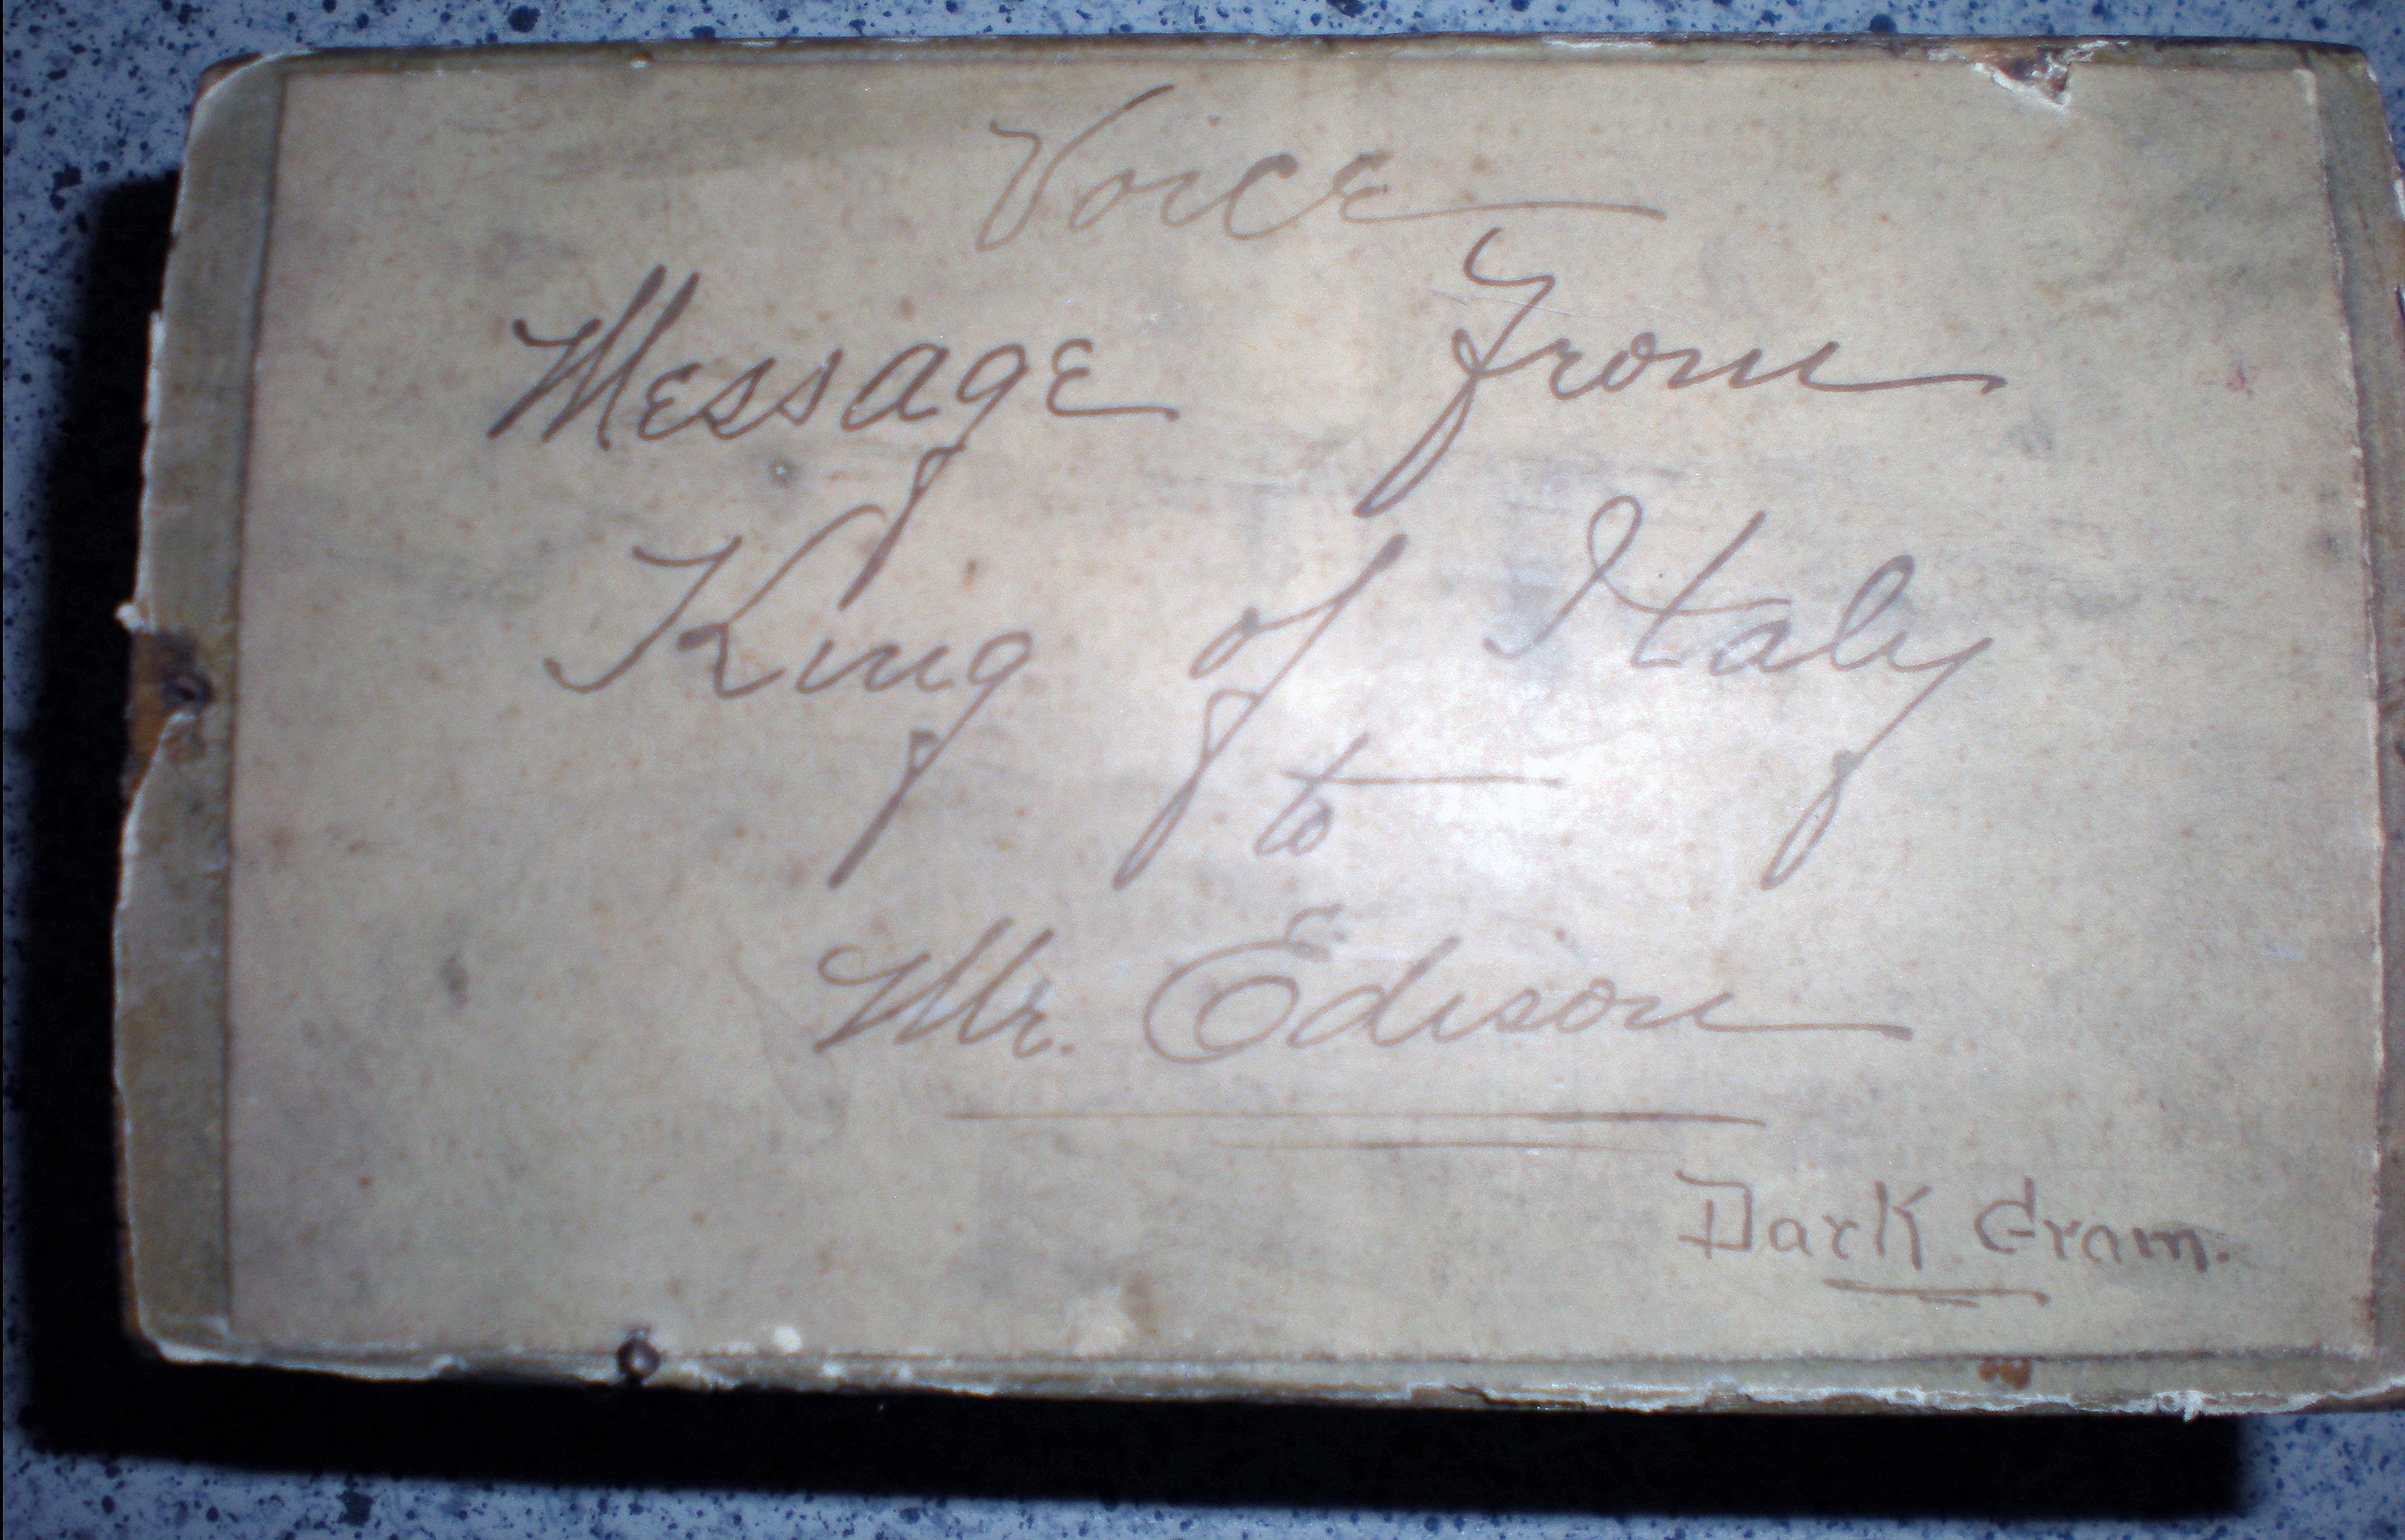 Voice
Message from
King of Italy
to
Mr. Edison
Dark Gram.